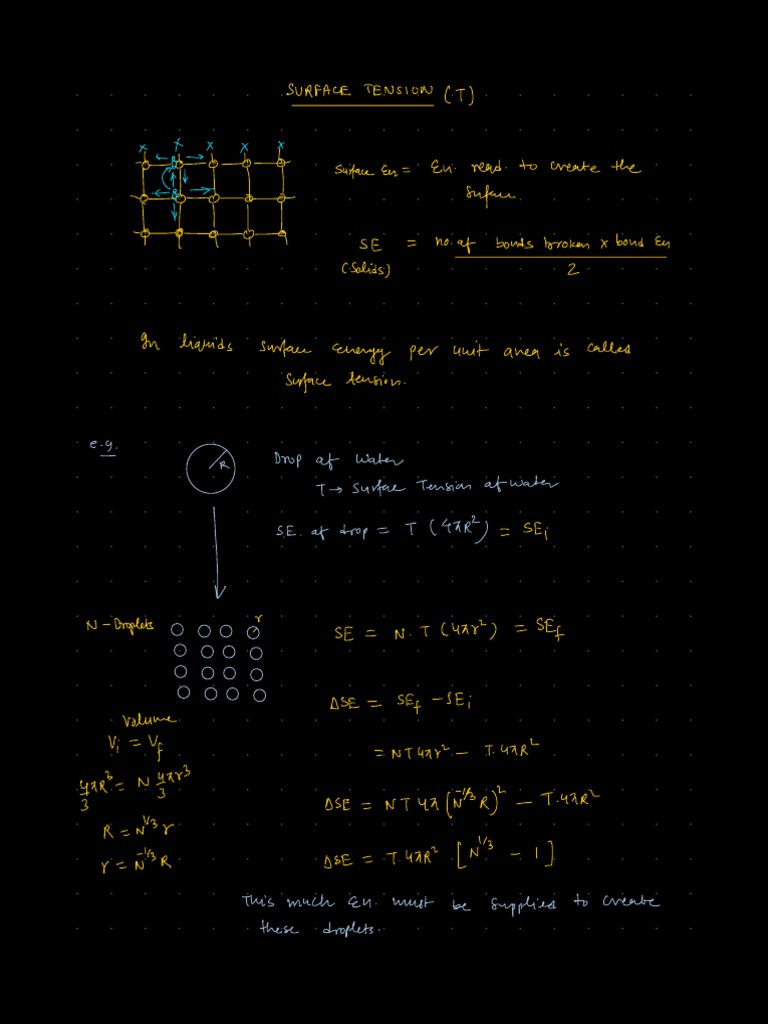 SURFACE TENSION (T)
x x x x x
Surface En = En. reqd. to create the
Surface.
SE = no. of bonds broken x bond En
(Solids) 2
In liquids surface energy per unit area is called
surface tension.
e.g.
R
Drop of water
T → Surface Tension of water
S.E. of drop = T (4πR²) = SEᵢ
N - Droplets
r
SE = N. T (4πr²) = SE_f
ΔSE = SE_f - SEᵢ
Volume
Vᵢ = V_f
= NT4πr² - T.4πR²
4πR³/3 = N 4πr³/3
ΔSE = NT4π (N^-1/3 R)² - T.4πR²
R = N^1/3 r
r = N^-1/3 R
ΔSE = T.4πR² [N^1/3 - 1]
This much En. must be supplied to create
these droplets.